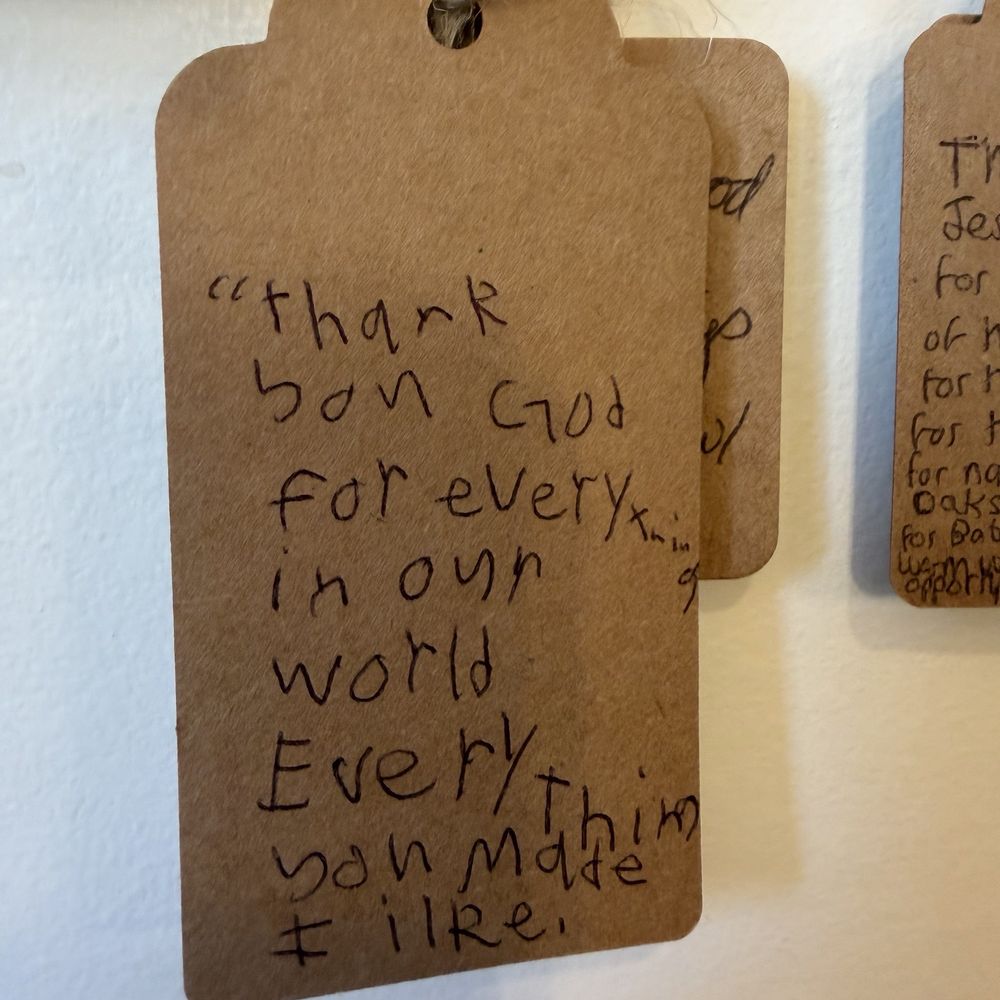 “thank
you God
for everything
in our
world
Everythin
you made
I ilke.
od
Th
Jes
for
of
for
for t
for na
Oaks
for Bat